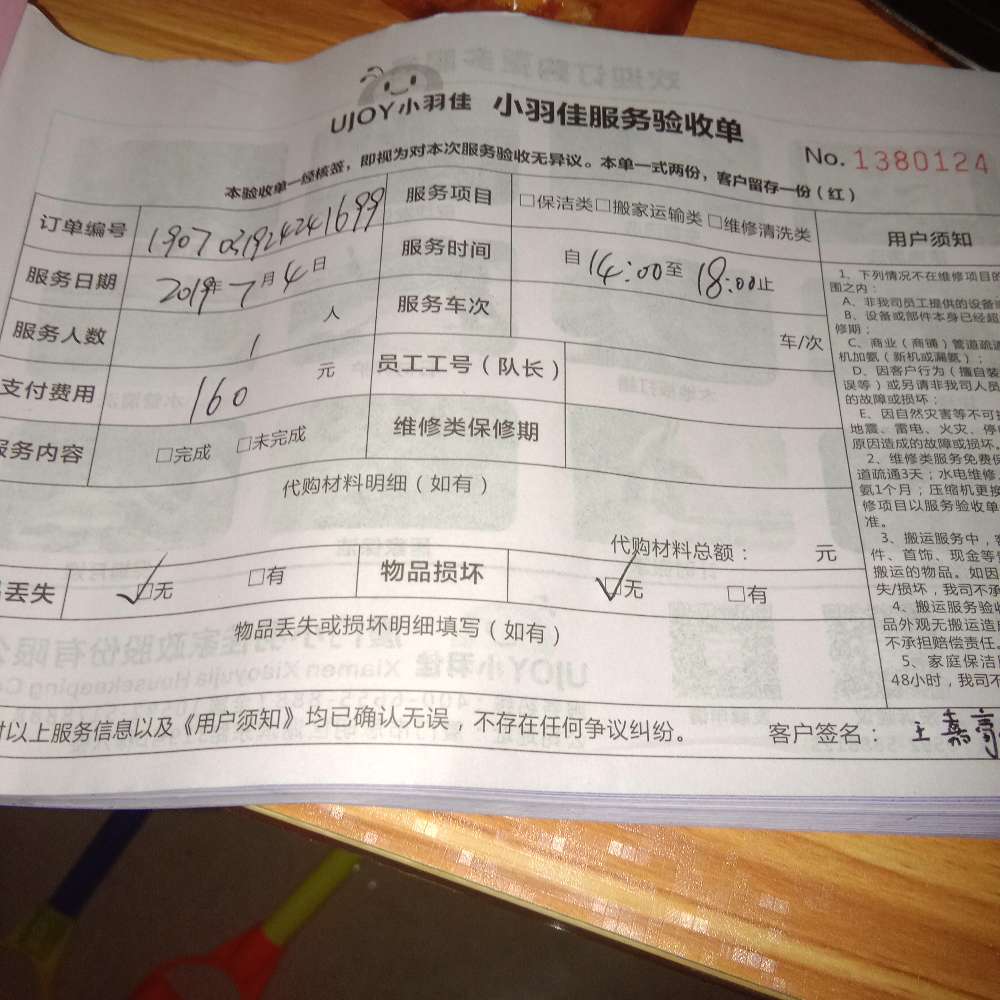 UJOY小羽佳 小羽佳服务验收单
No. 1380124
本验收单一经核签，即视为对本次服务验收无异议。本单一式两份，客户留存一份（红）
订单编号 1907031924241699 服务项目 □保洁类□搬家运输类□维修清洗类
服务日期 2019年7月4日 服务时间 自14:00至18:00止
服务人数 1人 服务车次 车/次
支付费用 160元 员工工号（队长）
服务内容 □完成 □未完成 维修类保修期
代购材料明细（如有）
代购材料总额： 元
丢失 ☑无 □有 物品损坏 ☑无 □有
物品丢失或损坏明细填写（如有）
对以上服务信息以及《用户须知》均已确认无误，不存在任何争议纠纷。 客户签名：王嘉
用户须知
1、下列情况不在维修项目的
围之内：
A、非我司员工提供的设备
B、设备或部件本身已经超
修期；
C、商业（商铺）管道疏
机加氨（新机或漏氨）；
D、因客户行为（擅自装
误等）或另请非我司人员
的故障或损坏；
E、因自然灾害等不可
地震、雷电、火灾、停
原因造成的故障或损坏。
2、维修类服务免费保
道疏通3天；水电维修
氨1个月；压缩机更换
修项目以服务验收单
准。
3、搬运服务中，
件、首饰、现金等
搬运的物品。如因
失/损坏，我司不承
4、搬运服务验收
品外观无搬运造
不承担赔偿责任。
5、家庭保洁
48小时，我司不